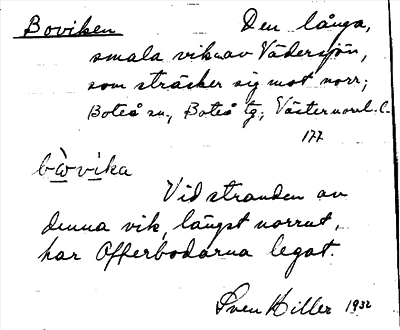 Boviken Den långa,
smala viken av Vädersjön,
som sträcker sig mot norr;
Boteå sn, Boteå tg; Västernorrl. l.
177
bὼvika
Vid stranden av
denna vik, längst norrut,
har Offerbodarna legat.
Sven Hiller 1932